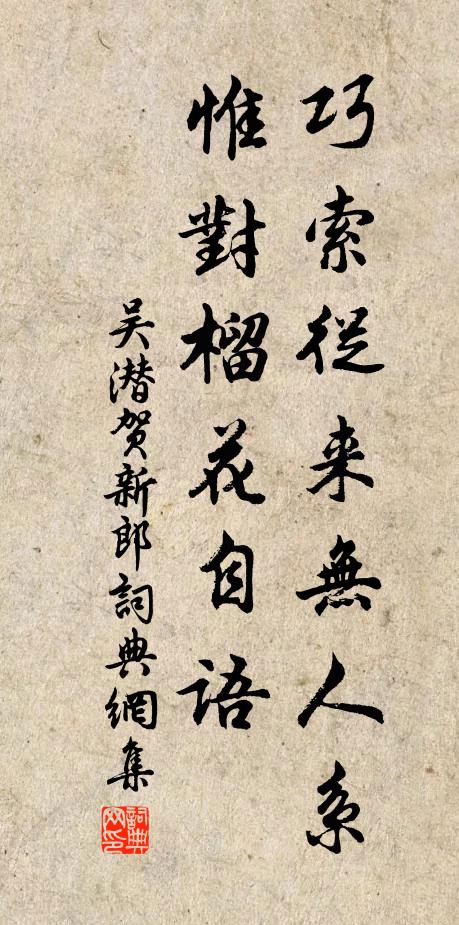 巧索從来無人系
惟對榴花自語
吴潜贺新郎詞典網集
詞典网印